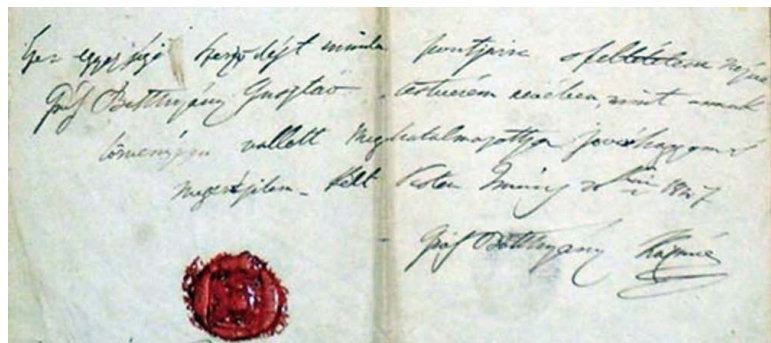 Ezen egyezségi szerződést minden pontjaira s feltételeire nézve
Gróf Batthyány Gusztáv testvérem nevében, mint annak
törvényesen vallott Meghatalmazottja jováhagyom s
megerősítem. Kelt Pesten 1847
Gróf Batthyány Kázmér